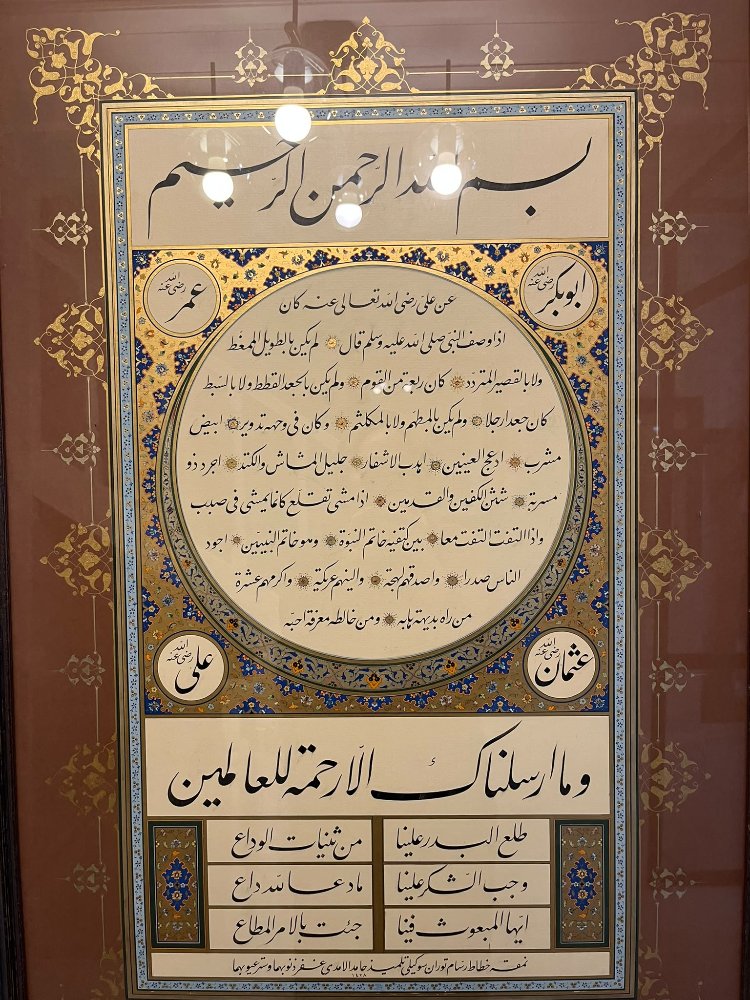 بسم الله الرحمن الرحيم
ابوبكر رضى الله عنه
عمر رضى الله عنه
عن على رضى الله تعالى عنه كان
اذا وصف النبى صلى الله عليه وسلم قال لم يكن بالطويل الممغط
ولا بالقصير المتردد كان ربعة من القوم ولم يكن بالجعد القطط ولا بالسبط
كان جعدا رجلا ولم يكن بالمطهم ولا بالمكلثم وكان فى وجهه تدوير ابيض
مشرب ادعج العينين اهدب الاشفار جليل المشاش والكتد اجرد ذو
مسربة شثن الكفين والقدمين اذا مشى تقلع كانما يمشى فى صبب
واذا التفت التفت معا بين كتفيه خاتم النبوة وهو خاتم النبيين اجود
الناس صدرا واصدقهم لهجة والينهم عريكة واكرمهم عشرة
من راه بديهة هابه ومن خالطه معرفة احبه
عثمان رضى الله عنه
على رضى الله عنه
وما ارسلناك الا رحمة للعالمين
طلع البدر علينا من ثنيات الوداع
وجب الشكر علينا ما دعا لله داع
ايها المبعوث فينا جئت بالامر المطاع
نمقه خطاط رسام توران سوكيلى تلميذ حامد الامدى غفر ذنوبهما وستر عيوبهما